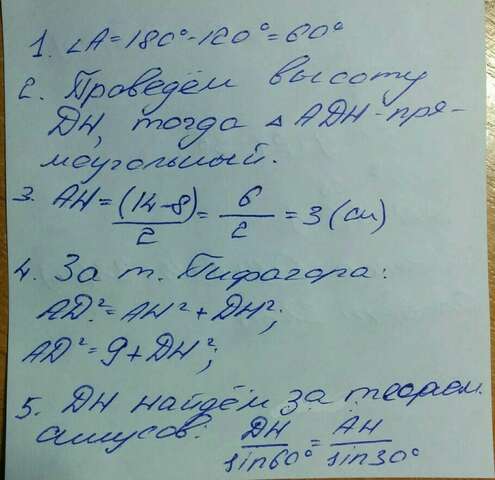 1. ∠A = 180° - 120° = 60°
2. Проведём высоту
DH, тогда △ ADH - пря-
моугольный.
3. AH = (14-8)/2 = 6/2 = 3 (см)
4. За т. Пифагора:
AD² = AH² + DH²;
AD² = 9 + DH²;
5. DH найдём за теорем.
синусов: DH/sin60° = AH/sin30°